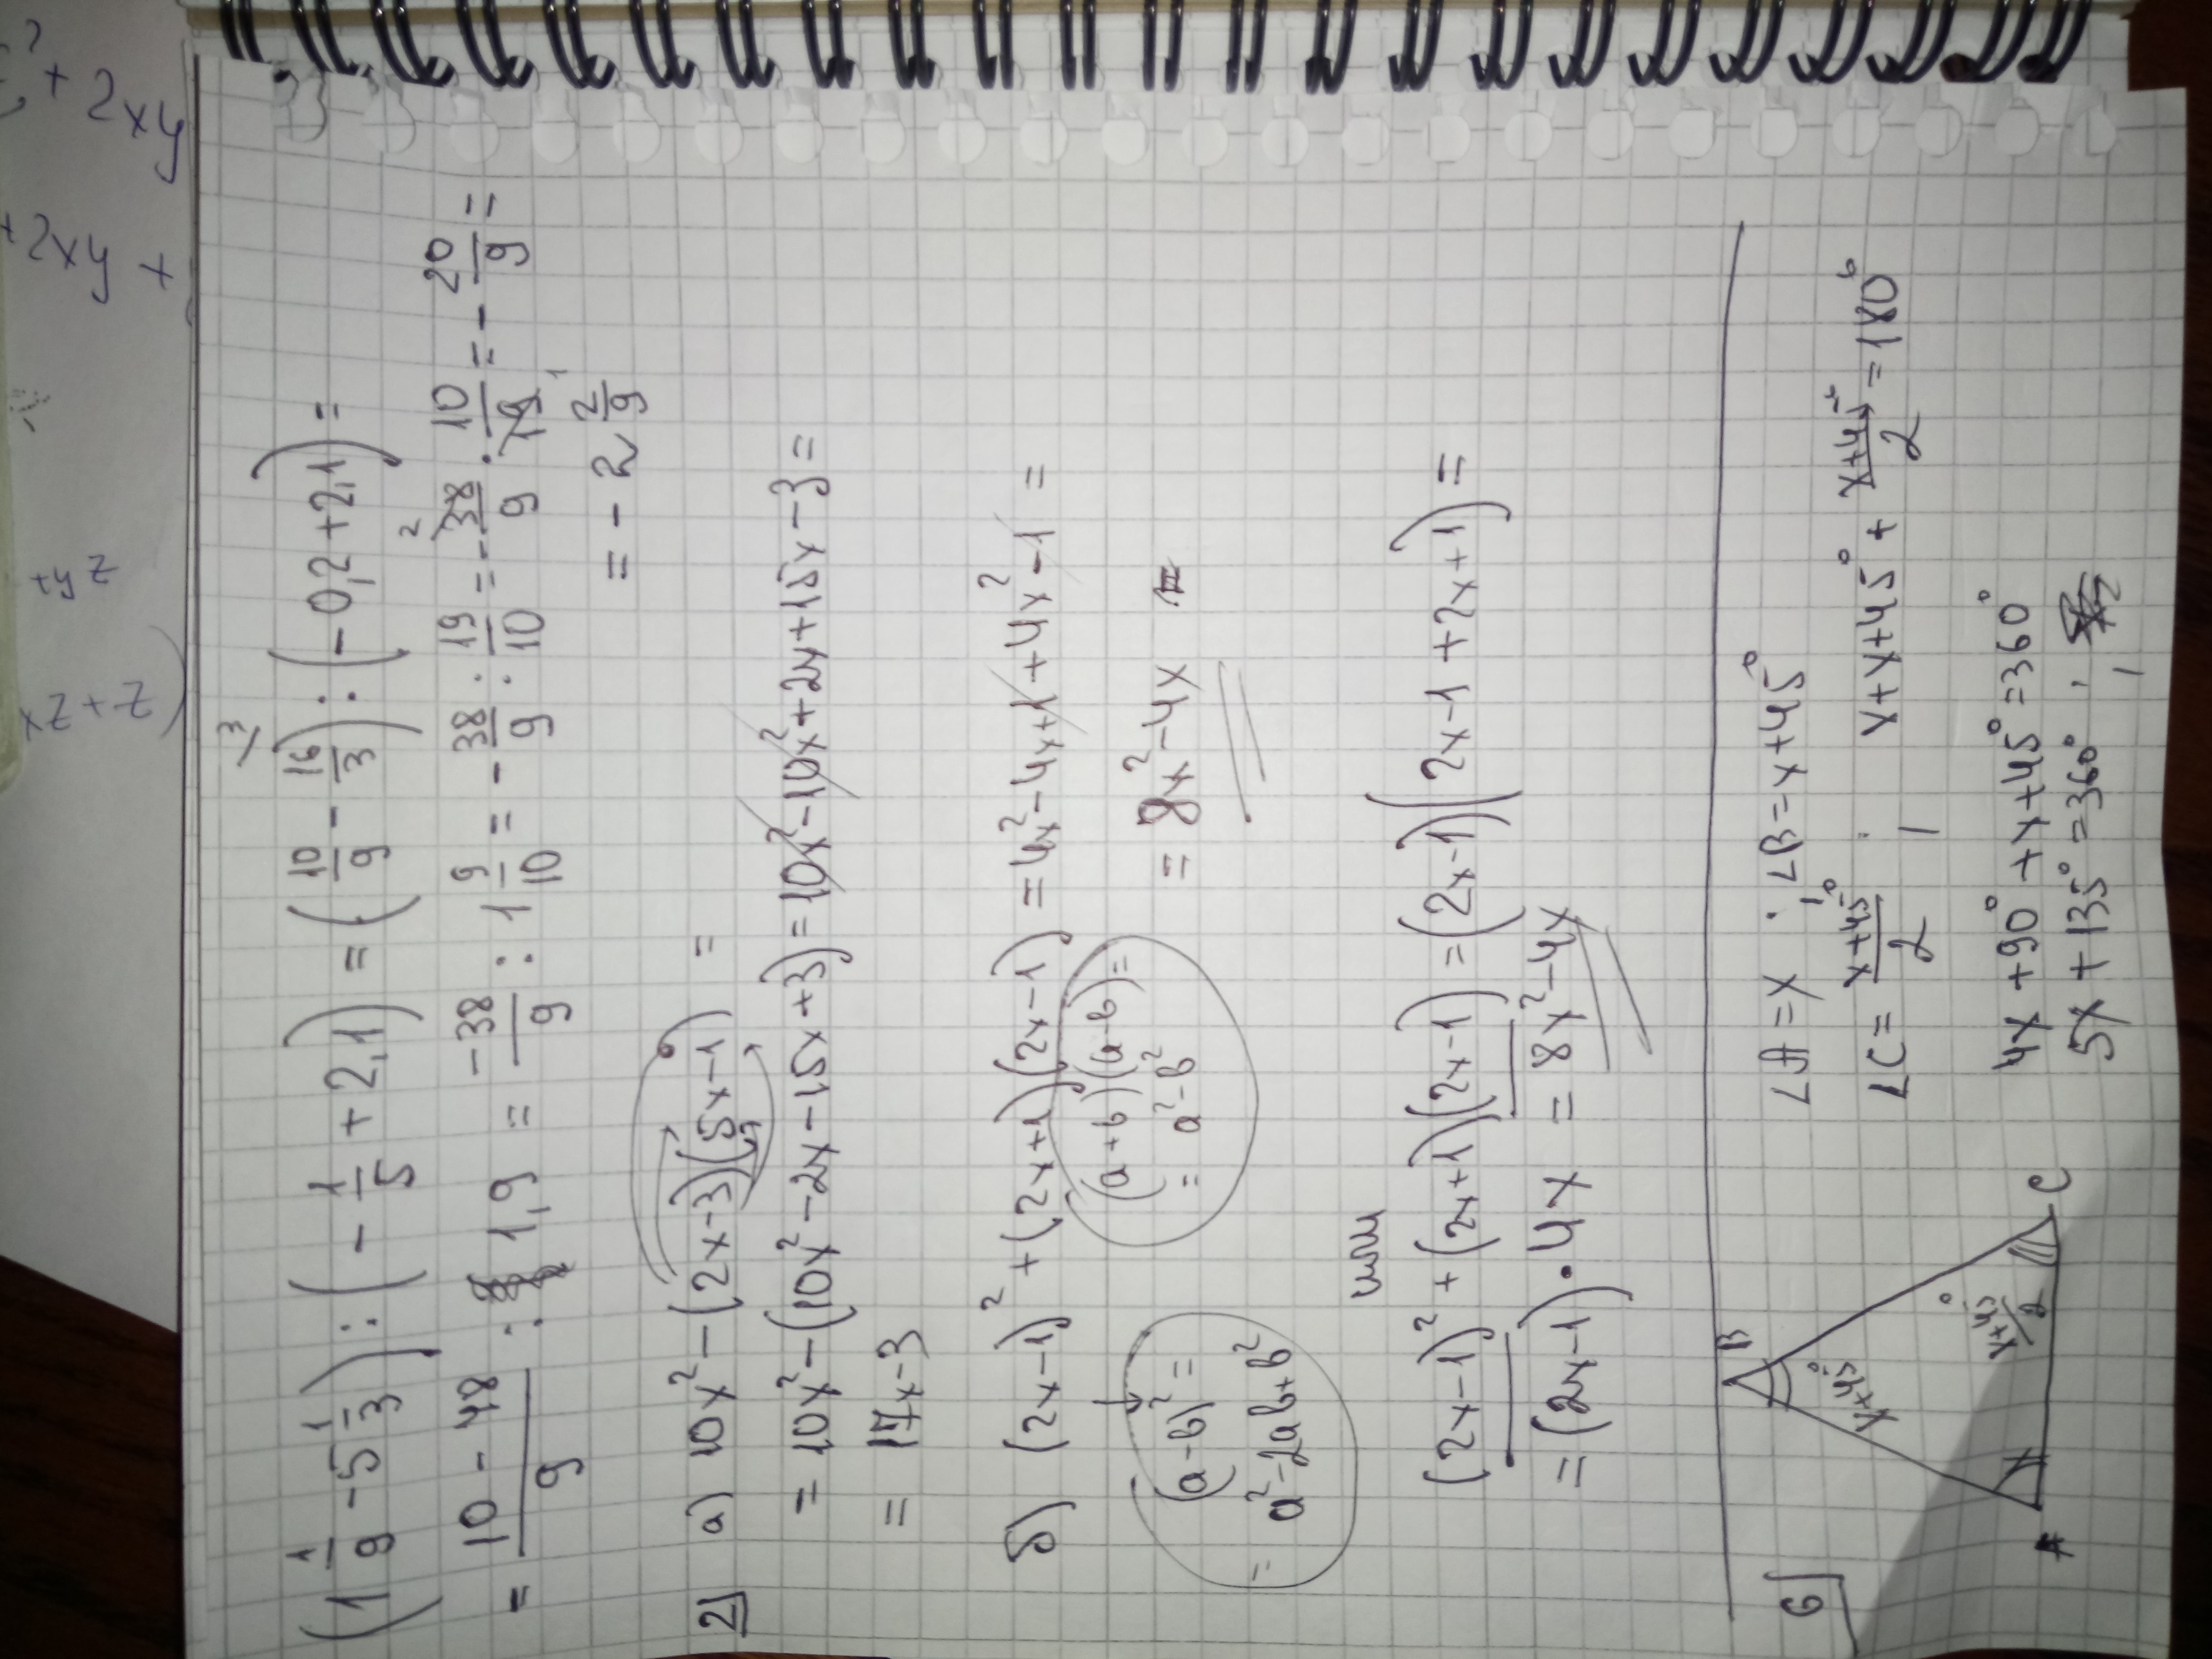 (1 1/9 - 5 1/3) : (- 1/5 + 2,1) = (10/9 - 16/3) : (-0,2 + 2,1) =
= (10 - 48)/9 : 1,9 = -38/9 : 1 9/10 = - 38/9 : 19/10 = - 38/9 · 10/19 = - 20/9 =
= - 2 2/9
2) а) 10x² - (2x-3)(5x-1) =
= 10x² - (10x² - 2x - 15x + 3) = 10x² - 10x² + 2x + 15x - 3 =
= 17x - 3
б) (2x-1)² + (2x+1)(2x-1) = 4x² - 4x + 1 + 4x² - 1 =
= 8x² - 4x
(a-b)² =
= a² - 2ab + b²
(a+b)(a-b) =
= a² - b²
или
(2x-1)² + (2x+1)(2x-1) = (2x-1)(2x-1+2x+1) =
= (2x-1) · 4x = 8x² - 4x
6)
B
x+45°
x+45°/2
A
C
∠A = x ; ∠B = x+45°
∠C = x+45°/2 ; x + x + 45° + x+45°/2 = 180°
4x + 90° + x + 45° = 360°
5x + 135° = 360° ;
x² + 2xy
+ 2xy +
+yz
xz + z)